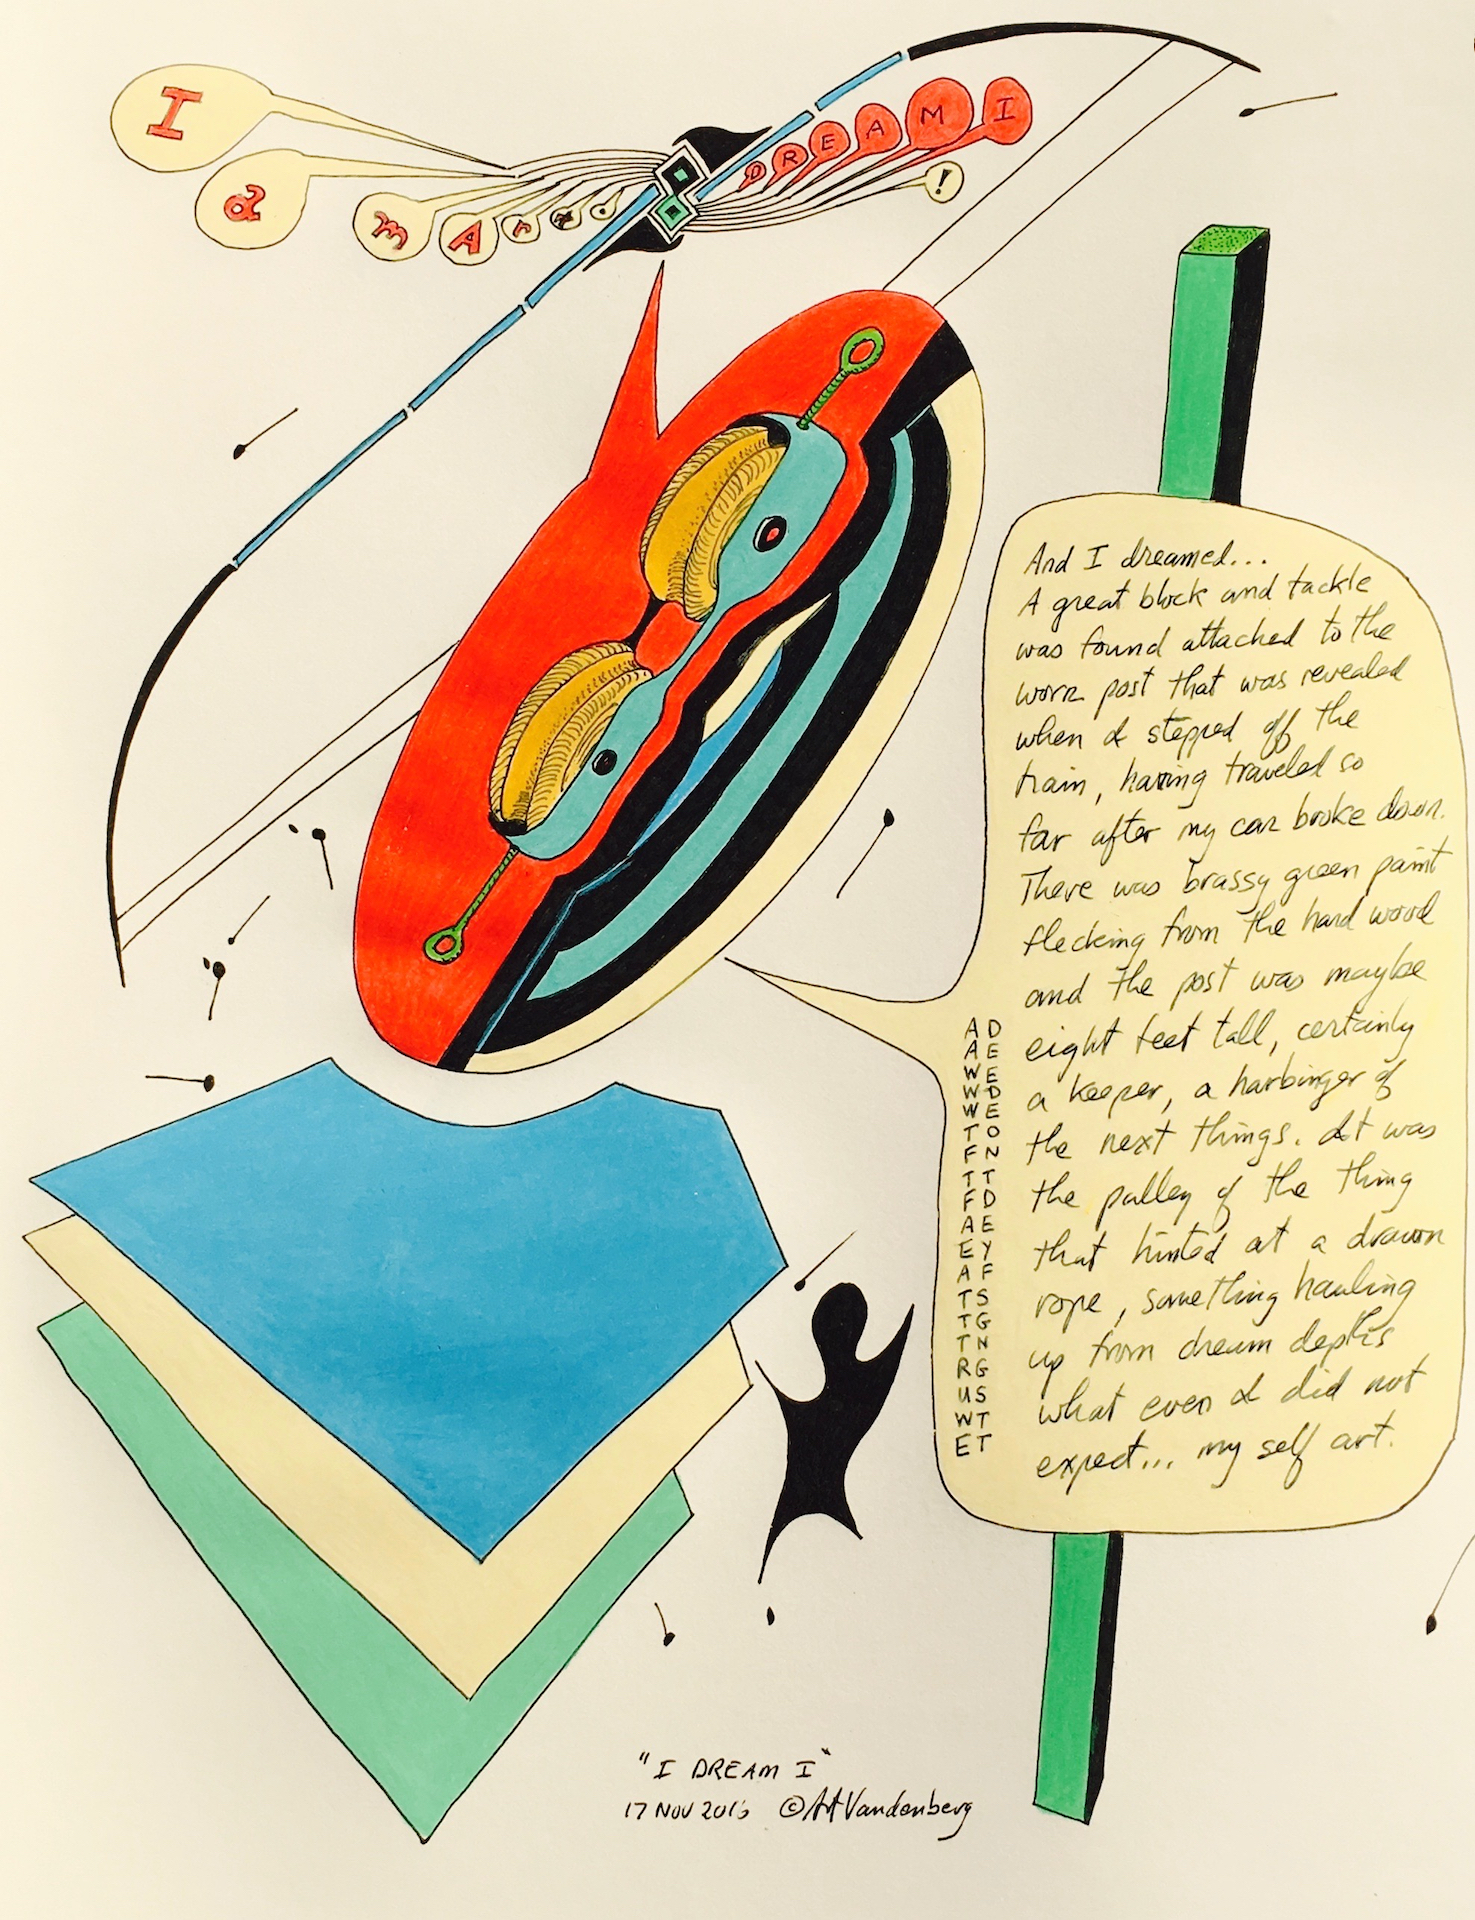 I a m A r t .
D R E A M I !
And I dreamed...
A great block and tackle
was found attached to the
worn post that was revealed
when I stepped off the
train, having traveled so
far after my car broke down.
There was brassy green paint
flecking from the hard wood
and the post was maybe
eight feet tall, certainly
a keeper, a harbinger of
the next things. It was
the pulley of the thing
that hinted at a drawn
rope, something hauling
up from dream depths
what even I did not
expect... my self art.
A D
A E
W E
W D
W E
T O
F N
T T
F D
A E
E Y
A F
T S
T G
T N
R G
U S
W T
E T
"I DREAM I"
17 NOV 2016 © Art Vandenberg